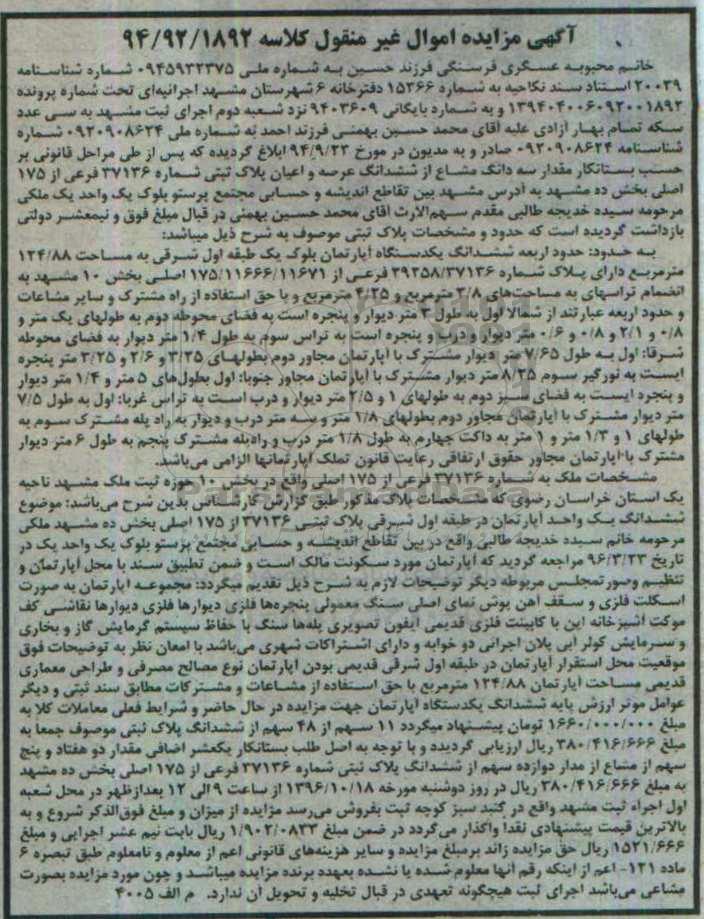 آگهی مزایده اموال غیر منقول کلاسه ۹۴/۹۲/۱۸۹۲
خانم محبوبه عسگری فرسنگی فرزند حسین به شماره ملی ۰۹۴۵۹۳۲۳۷۵ شماره شناسنامه
۲۰۰۳۹ استناد سند نکاحیه به شماره ۱۵۲۶۶ دفترخانه ۶ شهرستان مشهد اجرائیه‌ای تحت شماره پرونده
۱۳۹۴۰۴۰۰۶۰۹۲۰۰۱۸۹۲ و به شماره بایگانی ۹۴۰۳۶۰۹ نزد شعبه دوم اجرای ثبت مشهد به سی عدد
سکه تمام بهار آزادی علیه آقای محمد حسین بهمنی فرزند احمد به شماره ملی ۰۹۲۰۹۰۸۶۲۴ شماره
شناسنامه ۰۹۲۰۹۰۸۶۲۴ صادر و به مدیون در مورخ ۹۴/۹/۲۳ ابلاغ گردیده که پس از طی مراحل قانونی بر
حسب بستانکار مقدار سه دانگ مشاع از ششدانگ عرصه و اعیان پلاک ثبتی شماره ۳۷۱۳۶ فرعی از ۱۷۵
اصلی بخش ده مشهد به آدرس مشهد بین تقاطع اندیشه و حسابی مجتمع پرستو بلوک یک واحد یک ملکی
مرحومه سیده خدیجه طالبی مقدم سهم‌الارث آقای محمد حسین بهمنی در قبال مبلغ فوق و نیمعشر دولتی
بازداشت گردیده است که حدود و مشخصات پلاک ثبتی موصوف به شرح ذیل میباشد:
به حدود: حدود اربعه ششدانگ یکدستگاه آپارتمان بلوک یک طبقه اول شرقی به مساحت ۱۲۴/۸۸
مترمربع دارای پلاک شماره ۳۹۲۵۸/۳۷۱۳۶ فرعی از ۱۷۵/۱۱۶۶۶/۱۱۶۷۱ اصلی بخش ۱۰ مشهد به
انضمام تراسهای به مساحت‌های ۳/۸ مترمربع و ۴/۲۵ مترمربع و با حق استفاده از راه مشترک و سایر مشاعات
و حدود اربعه عبارتند از شمالا اول به طول ۳ متر دیوار و پنجره است به فضای محوطه دوم به طولهای یک متر و
۰/۸ و ۲/۱ و ۰/۸ و ۰/۶ متر دیوار و درب و پنجره است به تراس سوم به طول ۱/۴ متر دیوار به فضای محوطه
شرقا: اول به طول ۷/۶۵ متر دیوار مشترک با آپارتمان مجاور دوم بطولهای ۳/۲۵ و ۲/۶ و ۳/۲۵ متر پنجره
ایست به نورگیر سوم ۸/۲۵ متر دیوار مشترک با آپارتمان مجاور جنوبا: اول بطول‌های ۵ متر و ۱/۴ متر دیوار
و پنجره ایست به فضای سبز دوم به طولهای ۱ و ۲/۵ متر دیوار و درب است به تراس غربا: اول به طول ۷/۵
متر دیوار مشترک با آپارتمان مجاور دوم بطولهای ۱/۸ متر و سه متر درب و دیوار به راه پله مشترک سوم به
طولهای ۱ و ۱/۳ متر و ۱ متر به داکت چهارم به طول ۱/۸ متر درب و راه‌پله مشترک پنجم به طول ۶ متر دیوار
مشترک با آپارتمان مجاور حقوق ارتفاقی رعایت قانون تملک آپارتمانها الزامی می‌باشد.
مشخصات ملک به شماره ۳۷۱۳۶ فرعی از ۱۷۵ اصلی واقع در بخش ۱۰ حوزه ثبت ملک مشهد ناحیه
یک استان خراسان رضوی که مشخصات پلاک مذکور طبق گزارش کارشناس بدین شرح می‌باشد: موضوع
ششدانگ یک واحد آپارتمان در طبقه اول شرقی پلاک ثبتی ۳۷۱۳۶ از ۱۷۵ اصلی بخش ده مشهد ملکی
مرحومه خانم سیده خدیجه طالبی واقع در بین تقاطع اندیشه و حسابی مجتمع پرستو بلوک یک واحد یک در
تاریخ ۹۶/۳/۲۳ مراجعه گردید که آپارتمان مورد سکونت مالک است و ضمن تطبیق سند با محل آپارتمان و
تنظیم وصورتمجلس مربوطه دیگر توضیحات لازم به شرح ذیل تقدیم میگردد: مجموعه اپارتمان به صورت
اسکلت فلزی و سقف آهن پوش نمای اصلی سنگ معمولی پنجره‌ها فلزی دیوارها فلزی دیوارها نقاشی کف
موکت آشپزخانه این با کابینت فلزی قدیمی آیفون تصویری پله‌ها سنگ با حفاظ سیستم گرمایش گاز و بخاری
و سرمایش کولر آبی پلان اجرائی دو خوابه و دارای اشتراکات شهری می‌باشد با امعان نظر به توضیحات فوق
موقعیت محل استقرار آپارتمان در طبقه اول شرقی قدیمی بودن آپارتمان نوع مصالح مصرفی و طراحی معماری
قدیمی مساحت آپارتمان ۱۲۴/۸۸ مترمربع با حق استفاده از مشاعات و مشترکات مطابق سند ثبتی و دیگر
عوامل موثر ارزش پایه ششدانگ یکدستگاه آپارتمان جهت مزایده در حال حاضر و شرایط فعلی معاملات کلا به
مبلغ ۱۶۶۰/۰۰۰/۰۰۰ تومان پیشنهاد میگردد ۱۱ سهم از ۴۸ سهم از ششدانگ پلاک ثبتی موصوف جمعا به
مبلغ ۳۸۰/۴۱۶/۶۶۶ ریال ارزیابی گردیده و با توجه به اصل طلب بستانکار یکعشر اضافی مقدار دو هفتاد و پنج
سهم از مشاع از مدار دوازده سهم از ششدانگ پلاک ثبتی شماره ۳۷۱۳۶ فرعی از ۱۷۵ اصلی بخش ده مشهد
به مبلغ ۳۸۰/۴۱۶/۶۶۶ ریال در روز دوشنبه مورخه ۱۳۹۶/۱۰/۱۸ از ساعت ۹ الی ۱۲ بعدازظهر در محل شعبه
اول اجراء ثبت مشهد واقع در گنبد سبز کوچه ثبت بفروش می‌رسد مزایده از میزان و مبلغ فوق‌الذکر شروع و به
بالاترین قیمت پیشنهادی نقدا واگذار می‌گردد در ضمن مبلغ ۱/۹۰۲/۰۸۳۳ ریال بابت نیم عشر اجرایی و مبلغ
۱۵۲۱/۶۶۶ ریال حق مزایده زائد برمبلغ مزایده و سایر هزینه‌های قانونی اعم از معلوم و نامعلوم طبق تبصره ۶
ماده ۱۲۱- اعم از اینکه رقم آنها معلوم شده یا نشده بعهده برنده مزایده میباشد و چون مورد مزایده بصورت
مشاعی می‌باشد اجرای ثبت هیچگونه تعهدی در قبال تخلیه و تحویل آن ندارد. م الف ۴۰۰۵